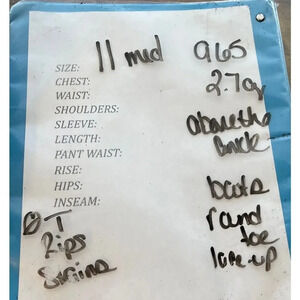 11 mud 965
SIZE:
CHEST: 2.7
WAIST:
SHOULDERS:
SLEEVE: above the
LENGTH:
PANT WAIST:
RISE:
HIPS: boots
INSEAM:
round
toe
Rips lace-up